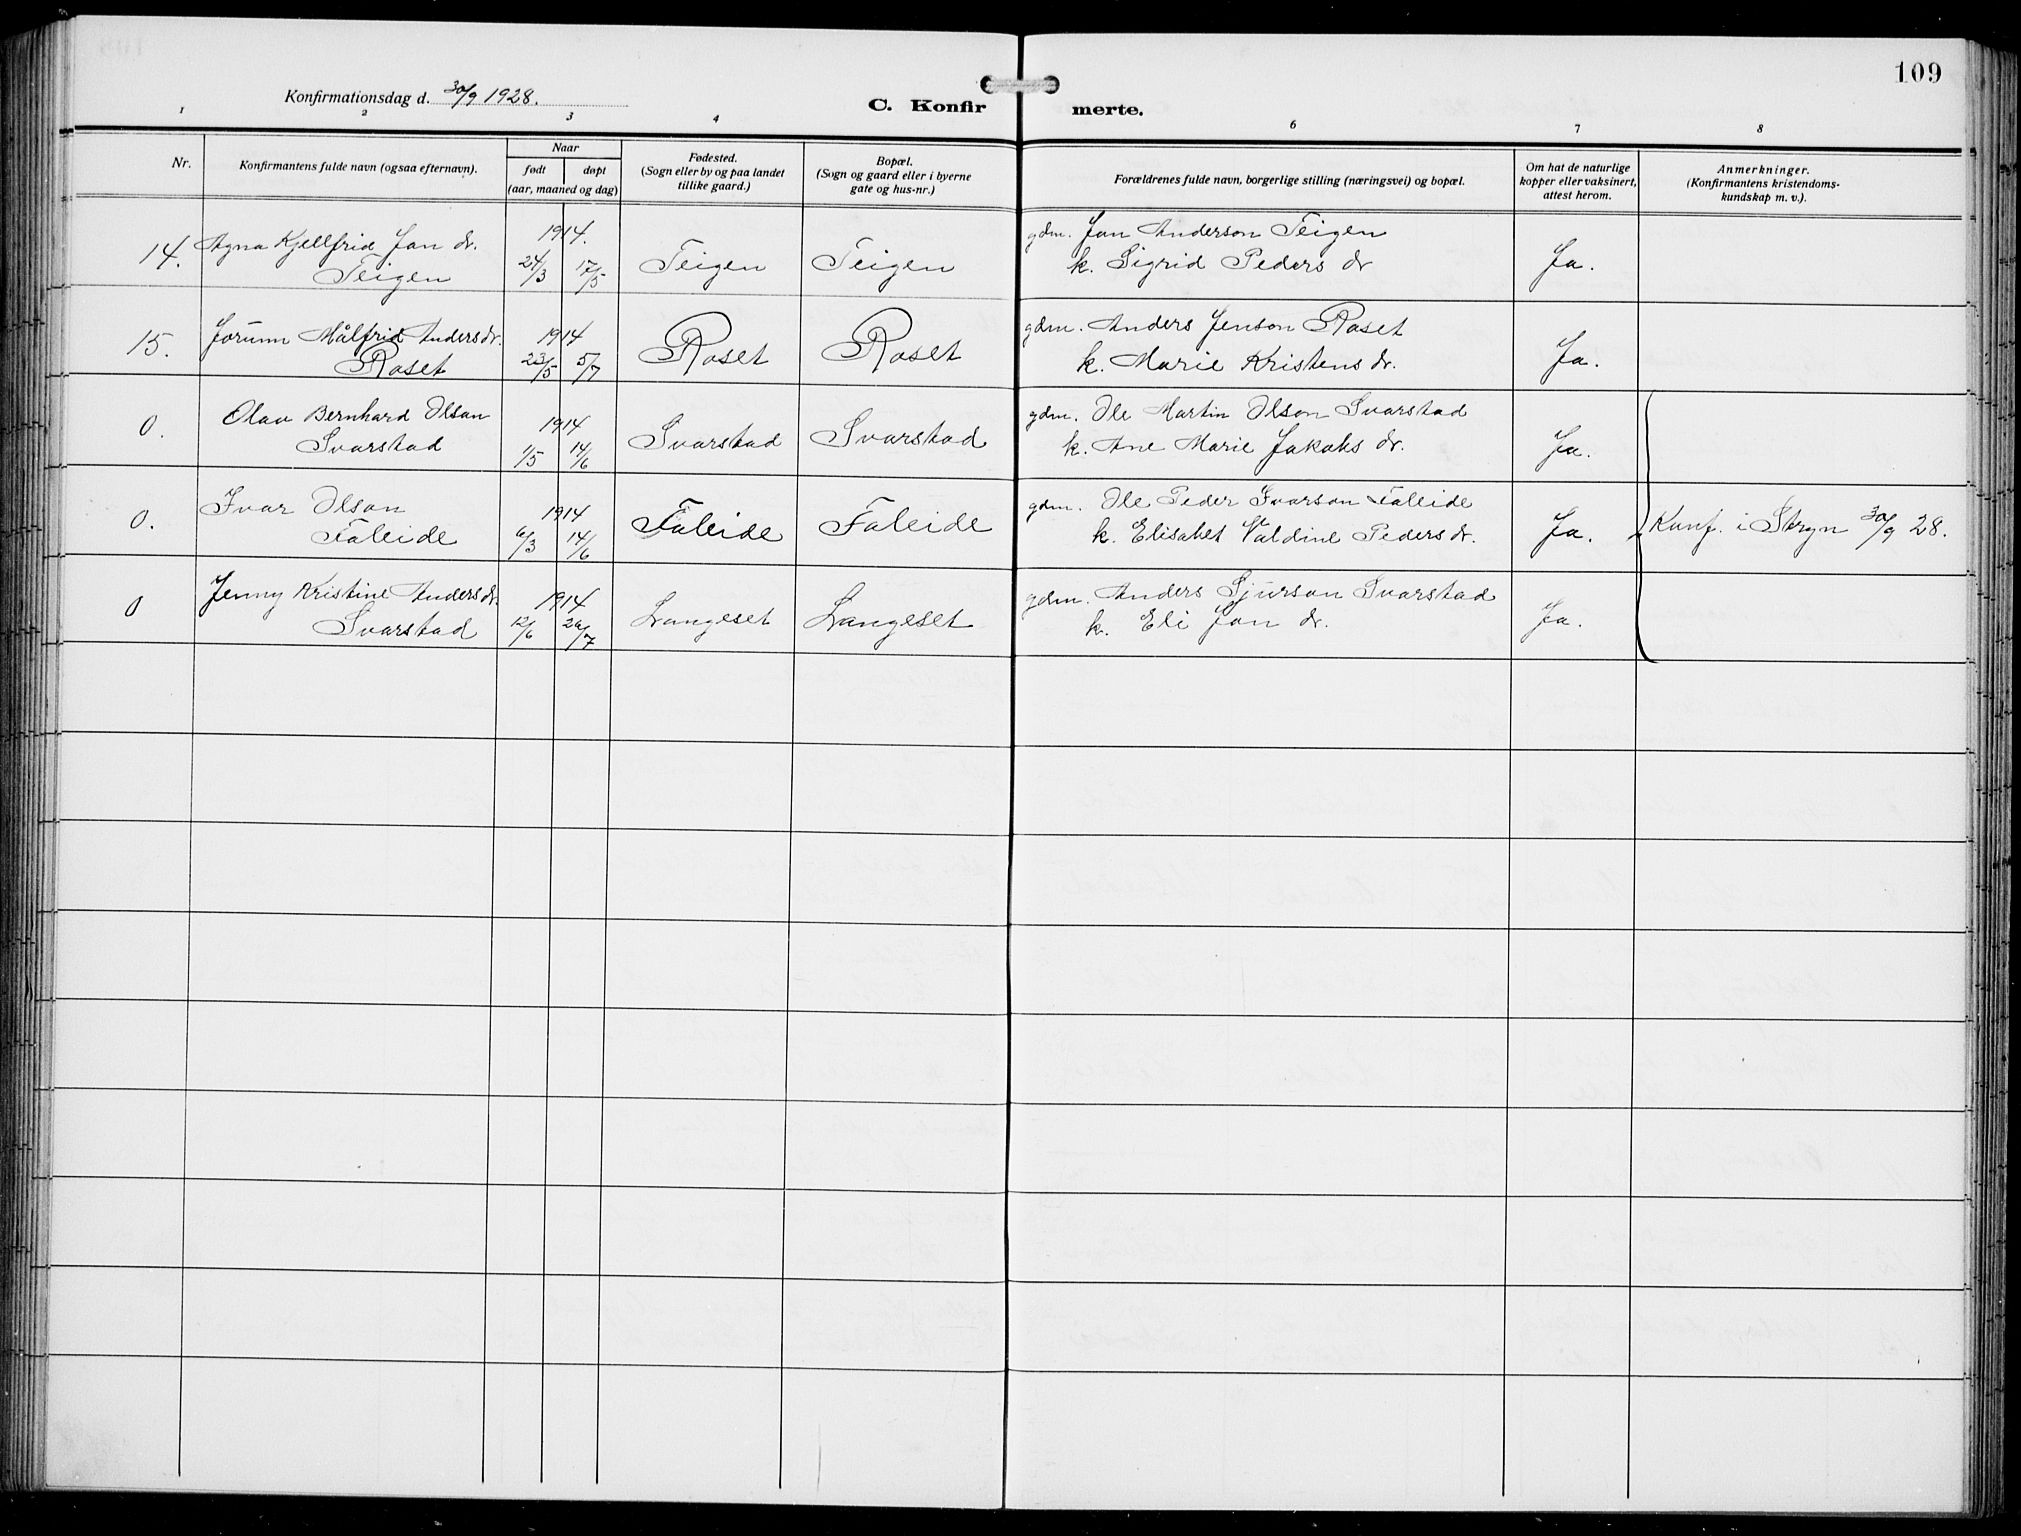 109
Konfirmationsdag d. 30/9 1928.
C. Konfir
merte.
1 2 3 4 6 7 8
Nr.
Konfirmantens fulde navn (ogsaa efternavn).
Naar
født døpt
(aar, maaned og dag)
Fødested.
(Sogn eller by og paa landet
tillike gaard.)
Bopæl.
(Sogn og gaard eller i byerne
gate og hus-nr.)
Forældrenes fulde navn, borgerlige stilling (næringsvei) og bopæl.
Om hat de naturlige
kopper eller vaksinert,
attest herom.
Anmerkninger.
(Konfirmantens kristendoms-
kundskap m. v.).
14. Agna Kjellfrid Jon dr. 1914. gdm. Jon Anderson Teigen
Teigen 24/3 17/5 Teigen Teigen k. Sigrid Peders dr Ja.
15. Jorunn Målfrid Anders dr. 1914 gdm. Anders Jenson Roset
Roset 23/5 5/7 Roset Roset k. Marie Kristens dr. Ja.
0. Olav Bernhard Olson 1914 gdm. Ole Martin Olson Svarstad
Svarstad 1/5 14/6 Svarstad Svarstad k. Ane Marie Jakobs dr. Ja.
0. Ivar Olson 1914 gdm. Ole Peder Ivarson Faleide
Faleide 6/3 14/6 Faleide Faleide k. Elisabet Valdine Peders dr. Ja. Konf. i Stryn 30/9 28.
0 Jenny Kristine Anders dr. 1914 gdm. Anders Sjurson Svarstad
Svarstad 12/6 26/7 Langeset Langeset k. Eli Jon dr. Ja.